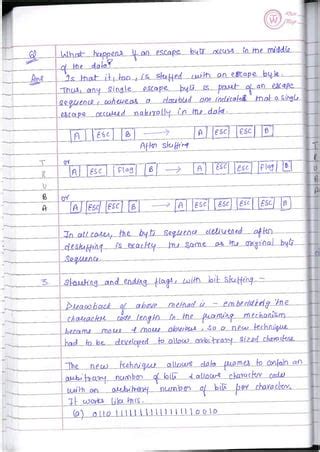 Q What happens if an escape byte occurs in the middle
of the data?
Ans Is that it, too, is stuffed with an escape byte.
Thus, any single escape byte is part of an escape
sequence, whereas a doubled one indicates that a single
escape occurred naturally in the data.
A ESC B → A ESC ESC B
After stuffing
or
A ESC Flag B → A ESC ESC ESC Flag B
or
A ESC ESC B → A ESC ESC ESC ESC B
In all cases, the byte sequence delivered after
destuffing is exactly the same as the original byte
sequence.
3. Starting and ending flags, with bit stuffing. -
Drawback of above method is - embedding the
character code length in the framing mechanism
became more & more obvious, so a new technique
had to be developed to allow arbitrary sized characters
The new technique allows data frames to contain an
arbitrary number of bits & allows character codes
with an arbitrary number of bits per character.
It works like this.
(a)